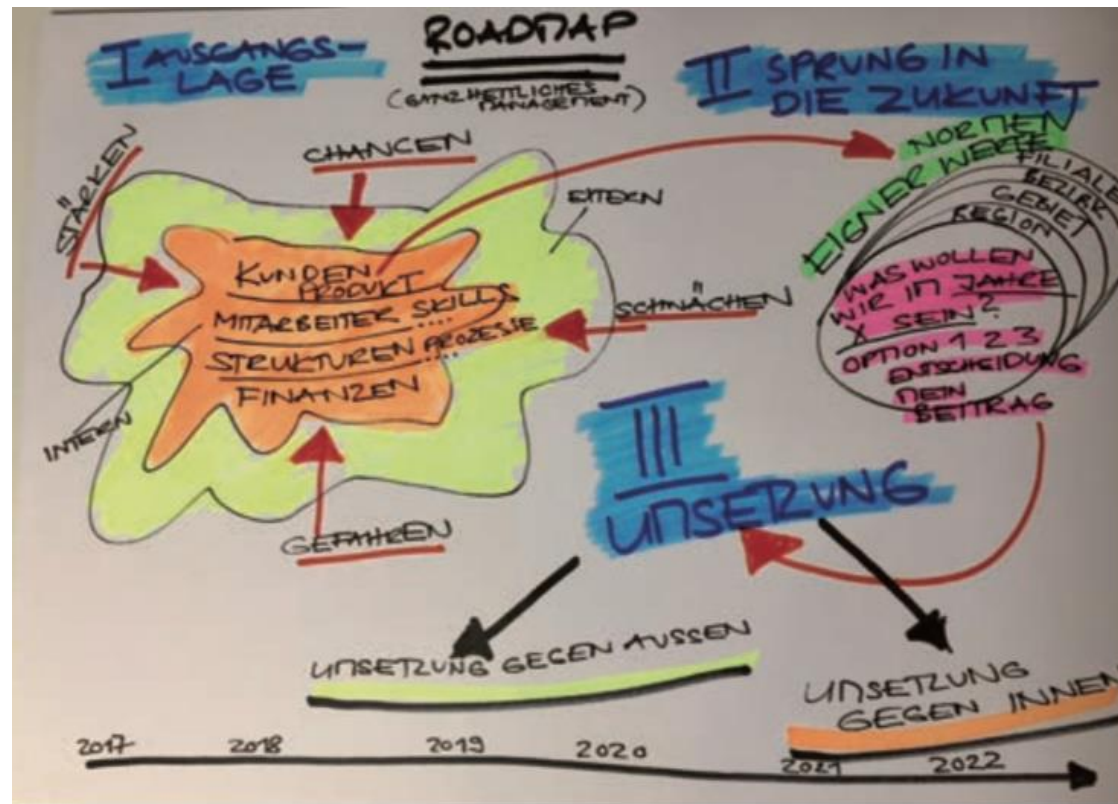 ROADMAP
(GANZHEITLICHES
MANAGEMENT)
I AUSGANGS-
LAGE
STÄRKEN
CHANCEN
EXTERN
KUNDEN
PRODUKT
MITARBEITER SKILLS
....
STRUKTUREN PROZESSE
....
FINANZEN
SCHWÄCHEN
INTERN
GEFAHREN
II SPRUNG IN
DIE ZUKUNFT
NORMEN
EIGNER WERTE
FILIALE
BEZIRK
GEBIET
REGION
WAS WOLLEN
WIR IM JAHRE
X SEIN?
OPTION 1 2 3
ENTSCHEIDUNG
MEIN
BEITRAG
III
UMSETZUNG
UMSETZUNG GEGEN AUSSEN
UMSETZUNG
GEGEN INNEN
2017 2018 2019 2020 2021 2022